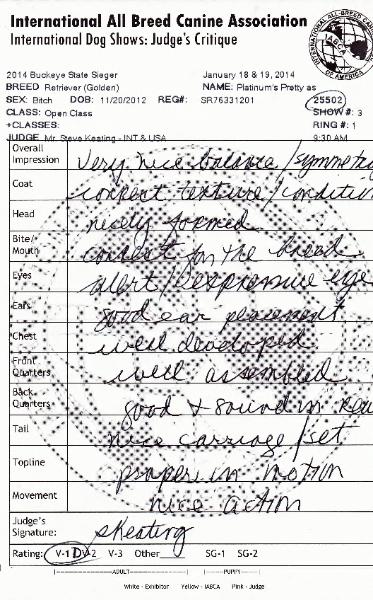 International All Breed Canine Association
International Dog Shows: Judge's Critique
INTERNATIONAL ALL-BREED CANINE ASSOCIATION OF AMERICA
IABCA
2014 Buckeye State Sieger January 18 & 19, 2014
BREED Retriever (Golden) NAME: Platinum's Pretty as
SEX: Bitch DOB: 11/20/2012 REG#: SR76331201 25502
CLASS: Open Class SHOW#: 3
+CLASSES: RING #: 1
JUDGE Mr. Steve Keating - INT & USA 9:30 AM
Overall Impression Very nice balance / symmetry
Coat correct texture / condition
Head nicely formed
Bite/Mouth correct for the breed
Eyes alert / expressive eye
Ears good ear placement
Chest well developed
Front Quarters well assembled
Back Quarters good & sound in rear
Tail nice carriage / set
Topline proper in motion
Movement nice action
Judge's Signature: SKeating
Rating: V-1 V-2 V-3 Other SG-1 SG-2
ADULT PUPPY
White - Exhibitor Yellow - IABCA Pink - Judge